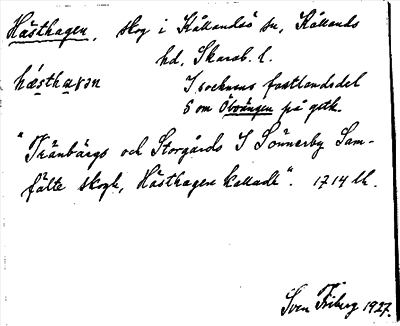 Hästhagen, skog i Kållandsö sn, Kållands
hd, Skarab. l.
hǽsthaɣən
I socknens fastlandsdel
S om Ölvängen på gstk.
"Tränbärgs och Storgårds I Sönnerby Sam-
fälte skogh, Hästhagen kallade". 1714 lh.
Sven Friberg 1927.